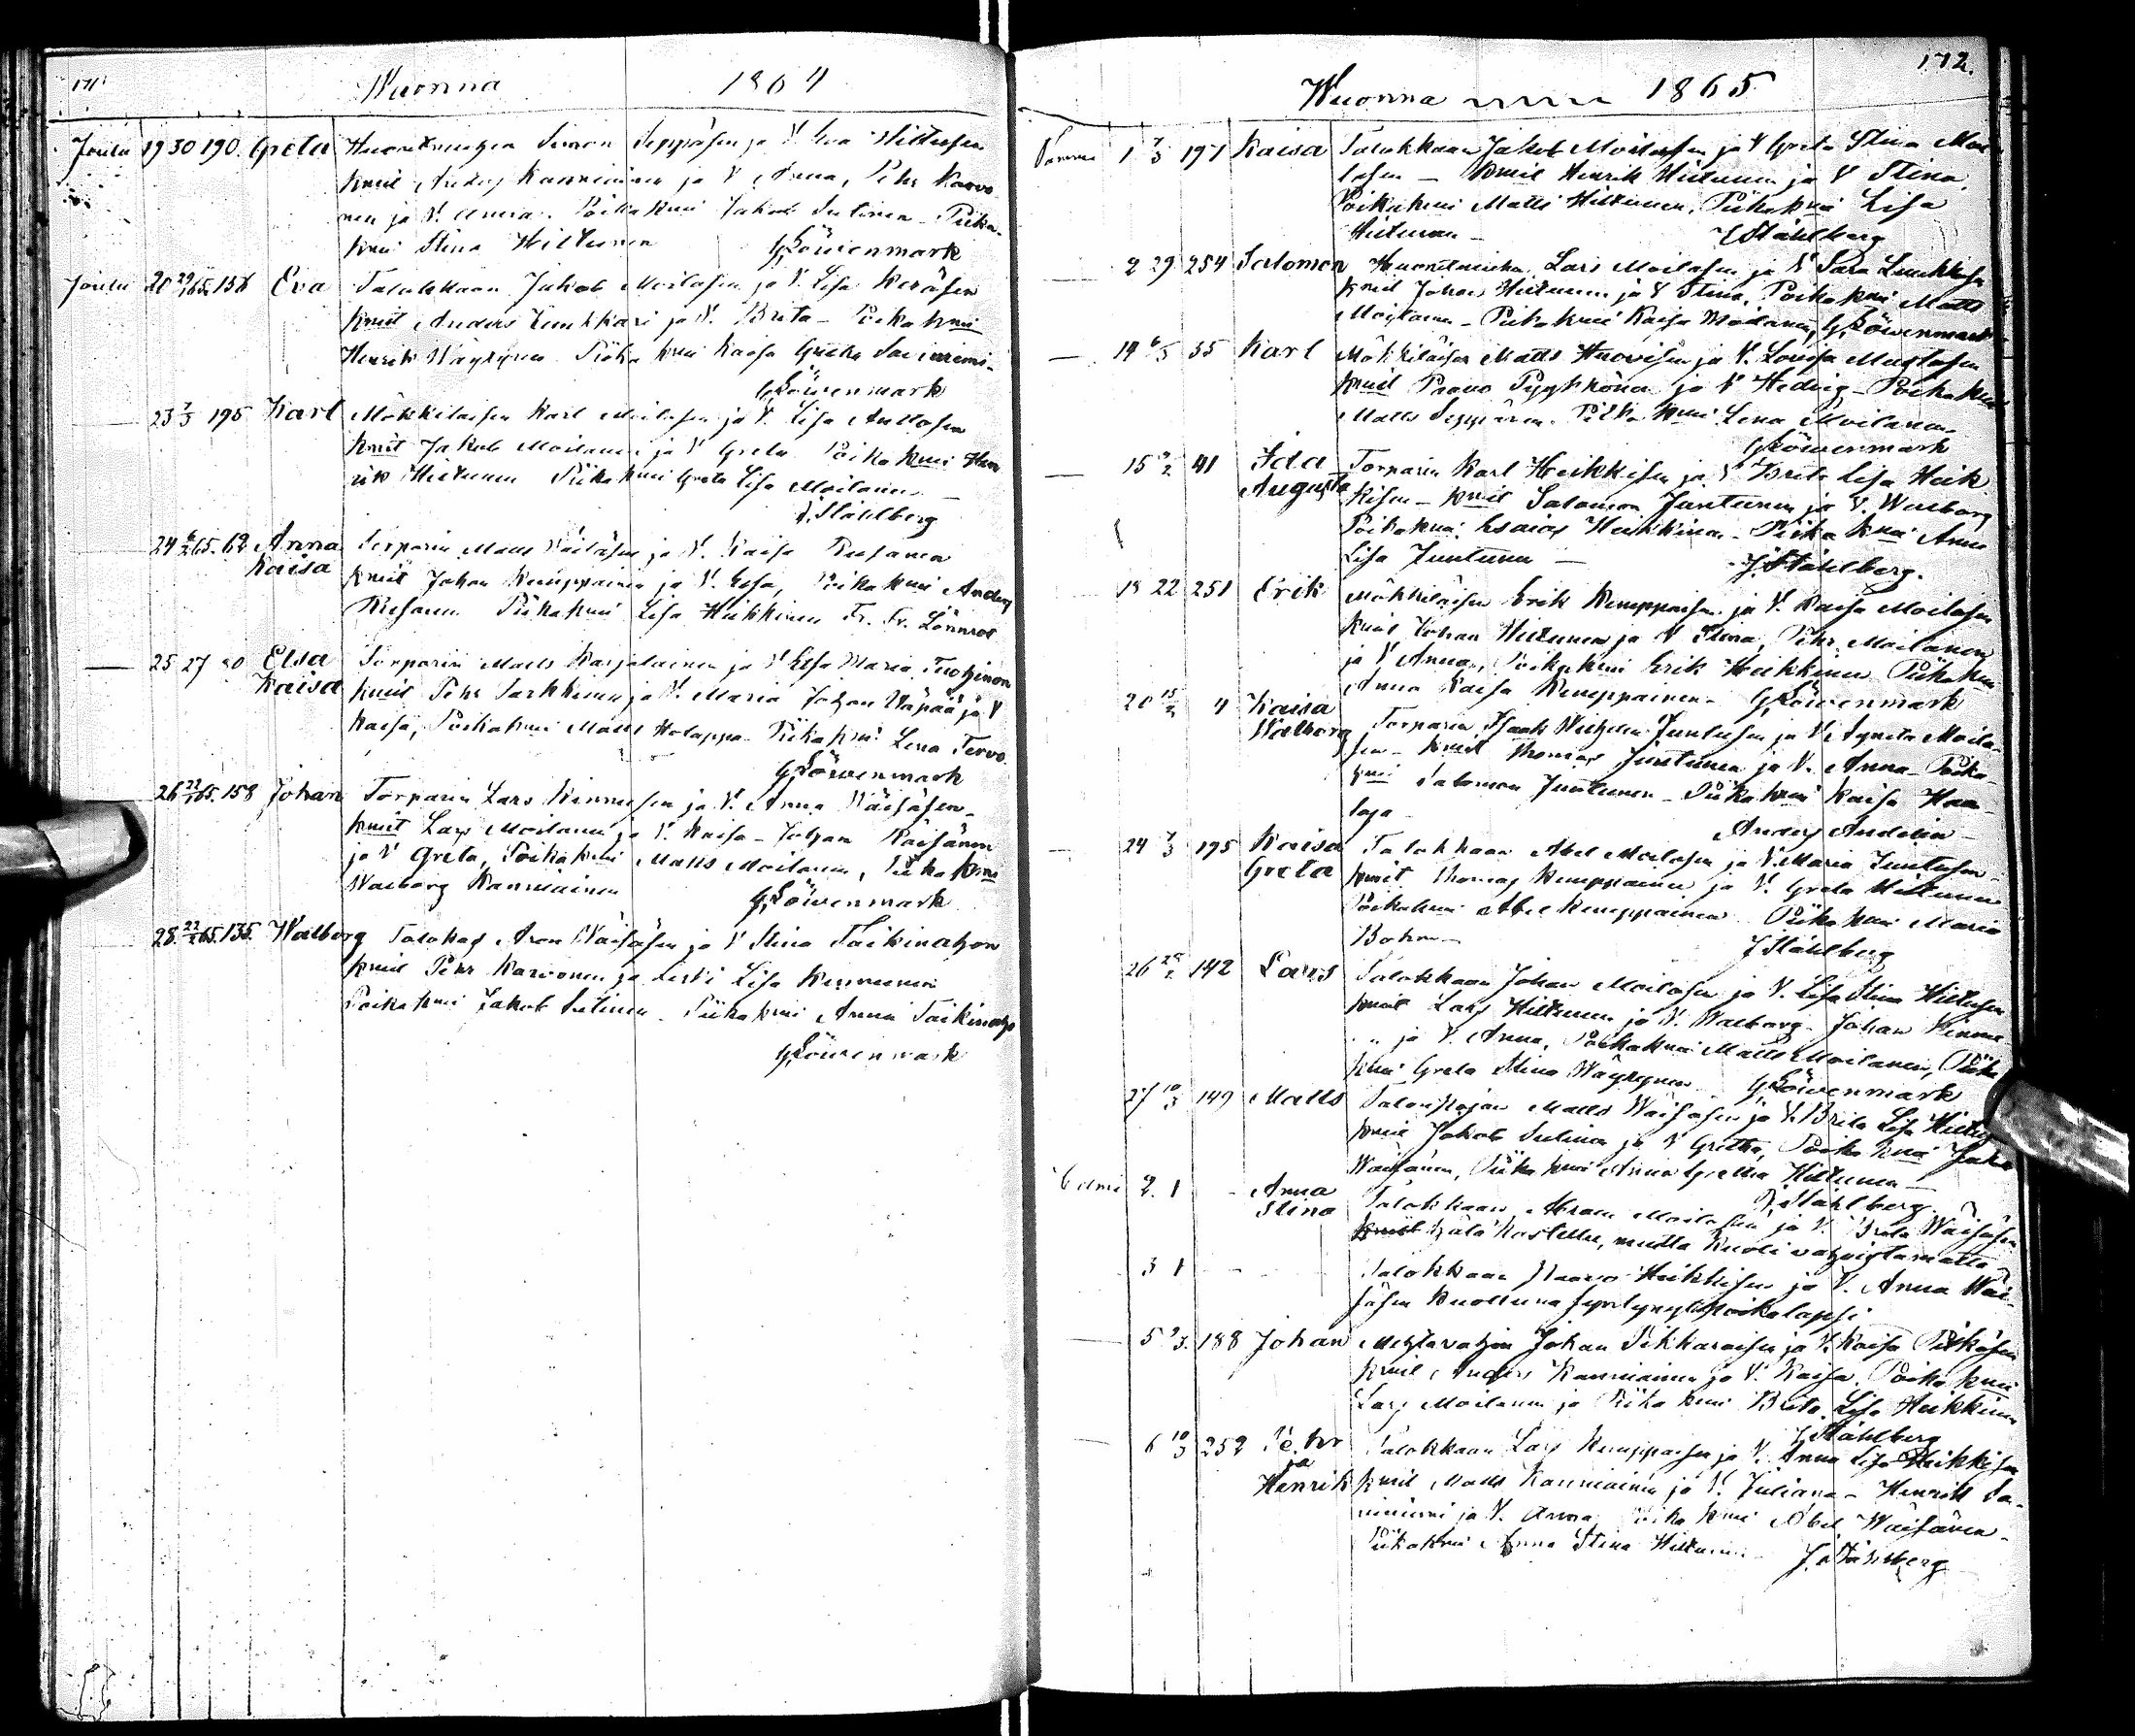 171
Wuonna 1864
Joulu 19 30 190. Greta Huonemiehen Simon Seppäsen ja V. Eva Hiltusen
kmit Anders Kanniainen ja V Anna, Pehr Karvo
nen ja V. Anna. Poika kmi Jakob Sutinen Piika
kmi Stina Hiltunen G,Löwenmark
Joulu 20 22/1 65. 158 Eva Talokkaan Jakob Moilasen ja V. Lisa Keräsen
kmit Anders Luukkari ja V. Brita - Poika kmi
Henrik Wäyrynen Piika kmi Kaisa Greta
G,Löwenmark
23 7/3 195 Karl Mökkiläisen Karl Moilasen ja V. Lisa Anttosen
kmit Jakob Moilanen ja V Greta Poika kmi Hen
rik Hiltunen Piika kmi Greta Lisa Moilanen
J. Ståhlberg
24 65. 62 Anna Torparin Matts Väisäsen ja V. Kaisa Rusanen
Kaisa kmit Johan Kemppainen ja V. Elsa, Poika kmi Anders
Rusanen Piika kmi Lisa Heikkinen Fr. Fr. Lönnrot
25 27 80 Elsa Torparin Matts Karjalainen ja V Elsa Maria
Kaisa kmit Pehr Sarkkinen ja V. Maria Johan Wäpää ja V
Kaisa, Poika kmi Matts Holappa Piika kmi Lena Tervo.
G,Löwenmark
26 22/1 65. 158 Johan Torparin Lars Kinnusen ja V. Anna Räisäsen
kmit Lars Moilanen ja V. Kaisa - Johan Räisänen
ja V Greta, Poika kmi Matts Moilanen, Piika kmi
Walborg Kanniainen G,Löwenmark
28 22/1 65. 135. Walborg Talokas Aron Wäisäsen ja V Stina Taikinahon
kmit Pehr Karvonen ja Leski Lisa Kinnunen
Poika kmi Jakob Sutinen Piika kmi Anna Taikinaho
G,Löwenmark
172.
Wuonna 1865
Tammi 1 7/3 197 Kaisa Talokkaan Jakob Moilasen ja V Greta Stina Moi
lasen - kmit Henrik Hiltunen ja V Stina,
Poika kmi Matts Hiltunen, Piika kmi Lisa
Hiltunen - J Ståhlberg
2 29 254 Salomon Huonemiehen Lars Moilasen ja V Sara Luukkosen
kmit Johan Hiltunen ja V Stina, Poika kmi Matts
Moilanen - Piika kmi Kaisa Moilanen G,Löwenmark
14 6/3 55 Karl Mökkiläisen Matts Huovisen ja V. Lovisa Mustosen
kmit Paavo Pyykkönen ja V Hedvig - Poika kmi
Matts Seppänen. Piika kmi Lena Moilanen
G,Löwenmark
15 41 Ida Torparin Karl Heikkisen ja V Brita Lisa Heik
Augusta kisen - kmit Salomon Juntunen ja V. Walborg
Poika kmi Esaias Heikkinen - Piika kmi Anna
Lisa Juntunen - J. Ståhlberg.
18 22 251 Erik Mökkiläisen Erik Kemppaisen ja V. Kaisa Moilasen
kmit Johan Hiltunen ja V Stina, Pehr Moilanen
ja V Anna, Poika kmi Erik Heikkinen Piika kmi
Anna Kaisa Kemppainen - G,Löwenmark
20 4 Kaisa
Walborg Torparin Isaak Wilhelm Juntusen ja V Agneta Moila
sen - kmit Thomas Juntunen ja V. Anna - Poika
kmi Salomon Juntunen - Piika kmi Kaisa Haa
taja Anders Andelin -
24 7/3 195 Kaisa Talokkaan Abel Moilasen ja V. Maria Juntusen
Greta kmit Thomas Kemppainen ja V. Greta Hiltunen
Poika kmi Abel Kemppainen Piika kmi Maria
Bohm - J Ståhlberg
26 25/2 142 Lars Talokkaan Johan Moilasen ja V. Lisa Stina Hiltusen
kmit Lars Hiltunen ja V. Walborg - Johan Kinnu
" ja V. Anna, Poika kmi Matts Moilanen, Piika
kmi Greta Stina Wäyrynen G,Löwenmark
27 10/3 149 Matts Talonpojan Matts Wäisäsen ja V. Brita Lisa Hiltus
kmit Jakob Sutinen ja V Gretha, Poika kmi Jakob
Wäisänen, Piika kmi Anna Gretha Hiltunen -
J, Ståhlberg.
Helmi 2. 1 - Anna Talokkaan Abram Moilasen ja V. Brita Wäisäsen
Stina kmit hätä kastettu, mutta kuoli vahvistamatta
3 1 - Talokkaan Paavo Heikkisen ja V. Anna Wäi
säsen kuolluna syntynyt Poikalapsi
5 9/3. 188 Johan Metsävahin Johan Pikkaraisen ja V. Kaisa
kmit Anders Kanniainen ja V. Kaisa. Poika kmi
Lars Moilanen ja Piika kmi Brita Lisa Heikkinen
J Ståhlberg
6 10/3 252 Petter Talokkaan Lars Kemppaisen ja V. Anna Lisa Heikkisen
ja
Henrik kmit Matts Kanniainen ja V. Juliana - Henrik
ja V. Anna Poika kmi Abel Wäisänen -
Piika kmi Anna Stina Hiltunen J. Ståhlberg